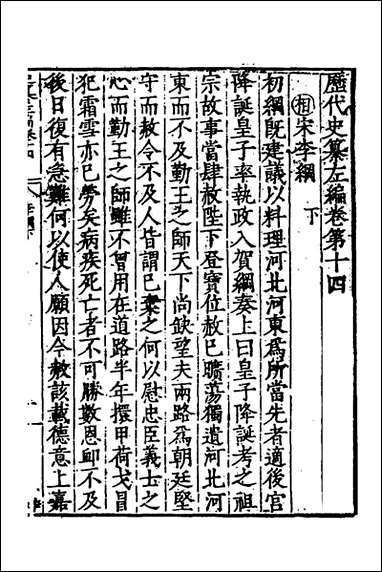 歷代史纂左編卷第十四
相宋李綱 下
初綱旣建議以料理河北河東爲所當先者適後宮
降誕皇子率執政入賀綱奏上曰皇子降誕考之祖
宗故事當肆赦陛下登寶位赦已曠蕩獨遺河北河
東而不及勤王之師天下尚缺望夫兩路爲朝廷堅
守而赦令不及人皆謂已棄之何以慰忠臣義士之
心而勤王之師雖不曾用在道路半年擐甲荷戈冒
犯霜雪亦已勞矣病疾死亡者不可勝數恩卹不及
後日復有急難何以使人願因今赦該載德意上嘉